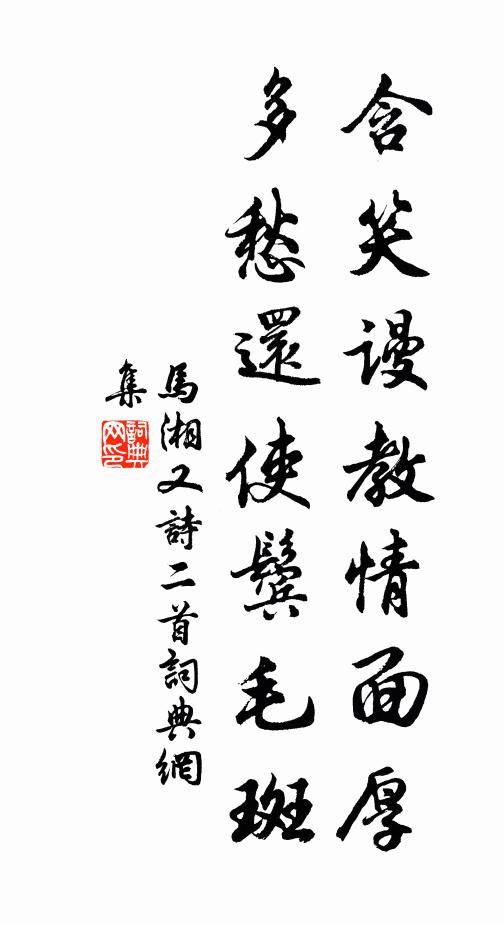 含笑謾教情面厚
多愁還使鬢毛斑
馬湘又詩二首詞典網
集
詞典
网印